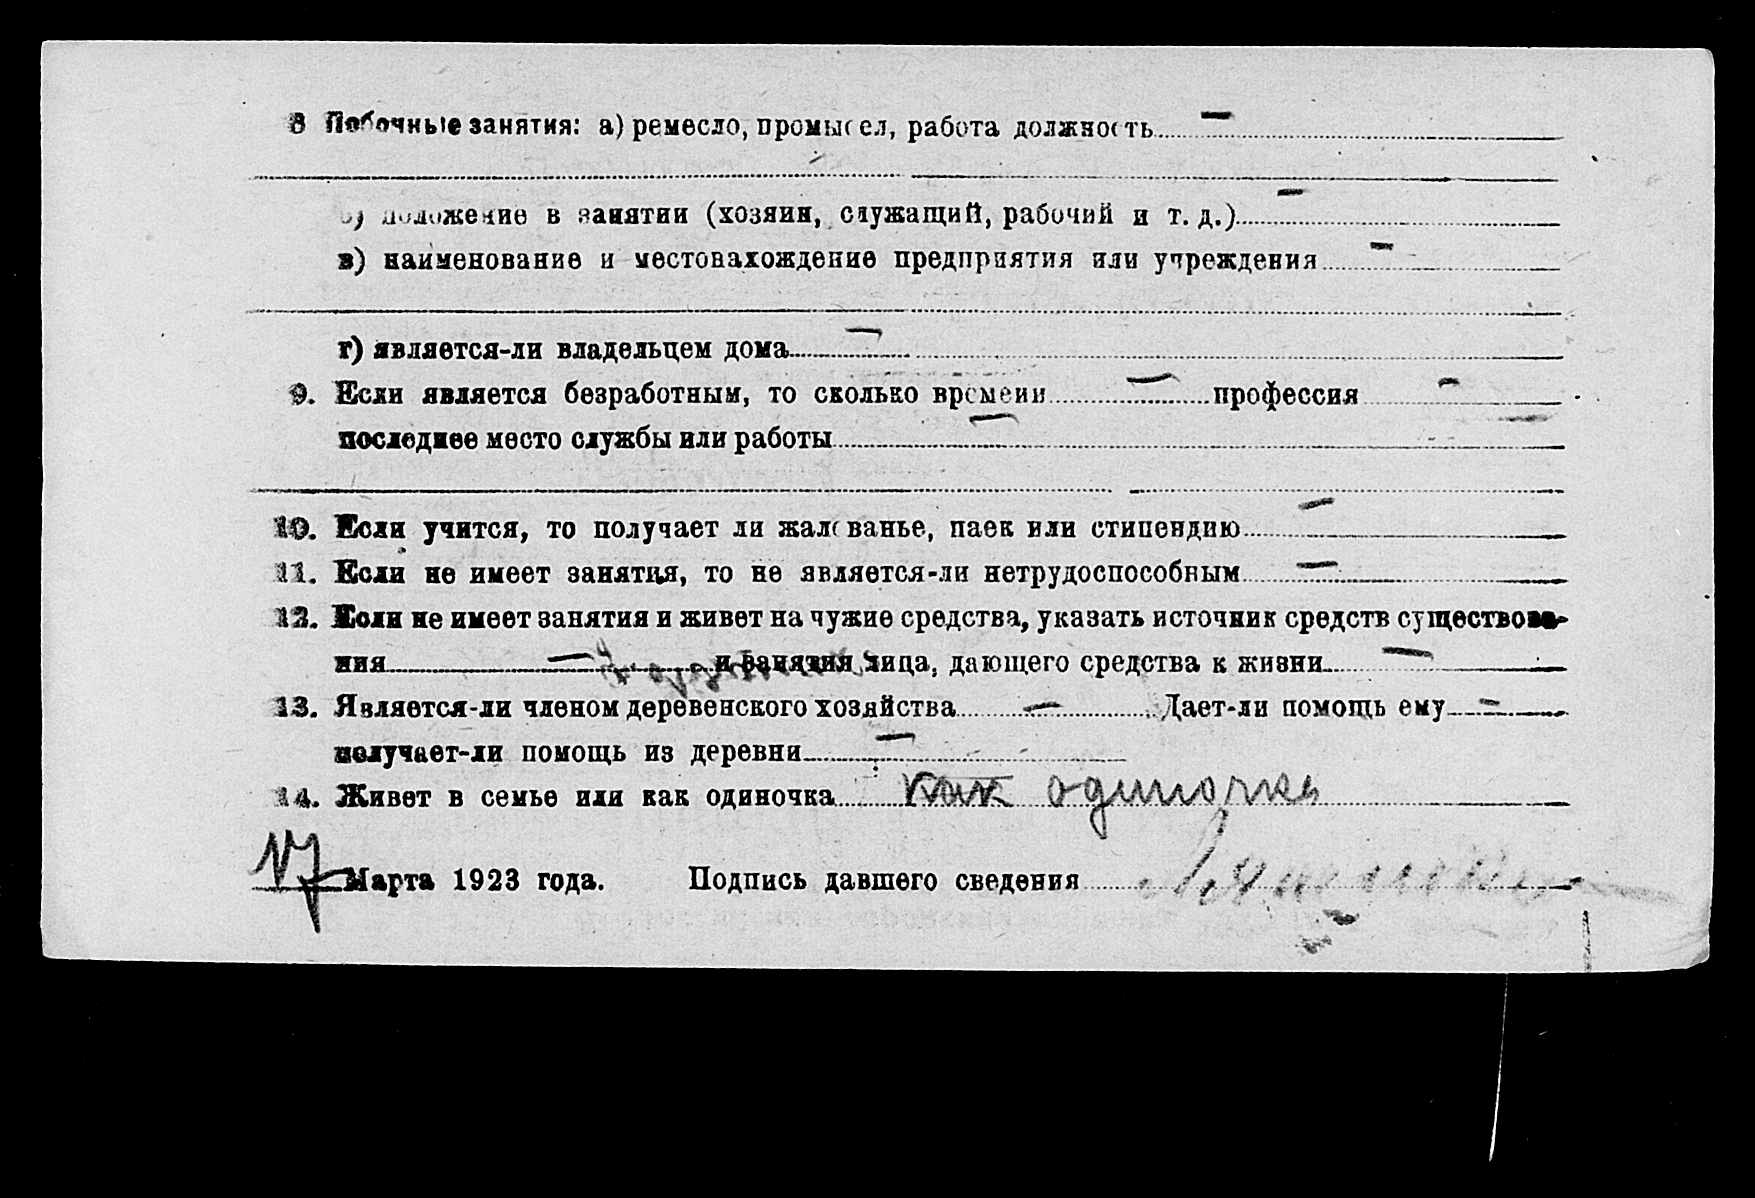 8 Побочные занятия: а) ремесло, промысел, работа должность —
б) положение в занятии (хозяин, служащий, рабочий и т. д.) —
в) наименование и местонахождение предприятия или учреждения —
г) является-ли владельцем дома —
9. Если является безработным, то сколько времени — профессия —
последнее место службы или работы —
10. Если учится, то получает ли жалованье, паек или стипендию —
11. Если не имеет занятия, то не является-ли нетрудоспособным —
12. Если не имеет занятия и живет на чужие средства, указать источник средств существова-
ния — и занятия лица, дающего средства к жизни —
13. Является-ли членом деревенского хозяйства — Дает-ли помощь ему —
получает-ли помощь из деревни —
14. Живет в семье или как одиночка как одиночка
17 Марта 1923 года. Подпись давшего сведения